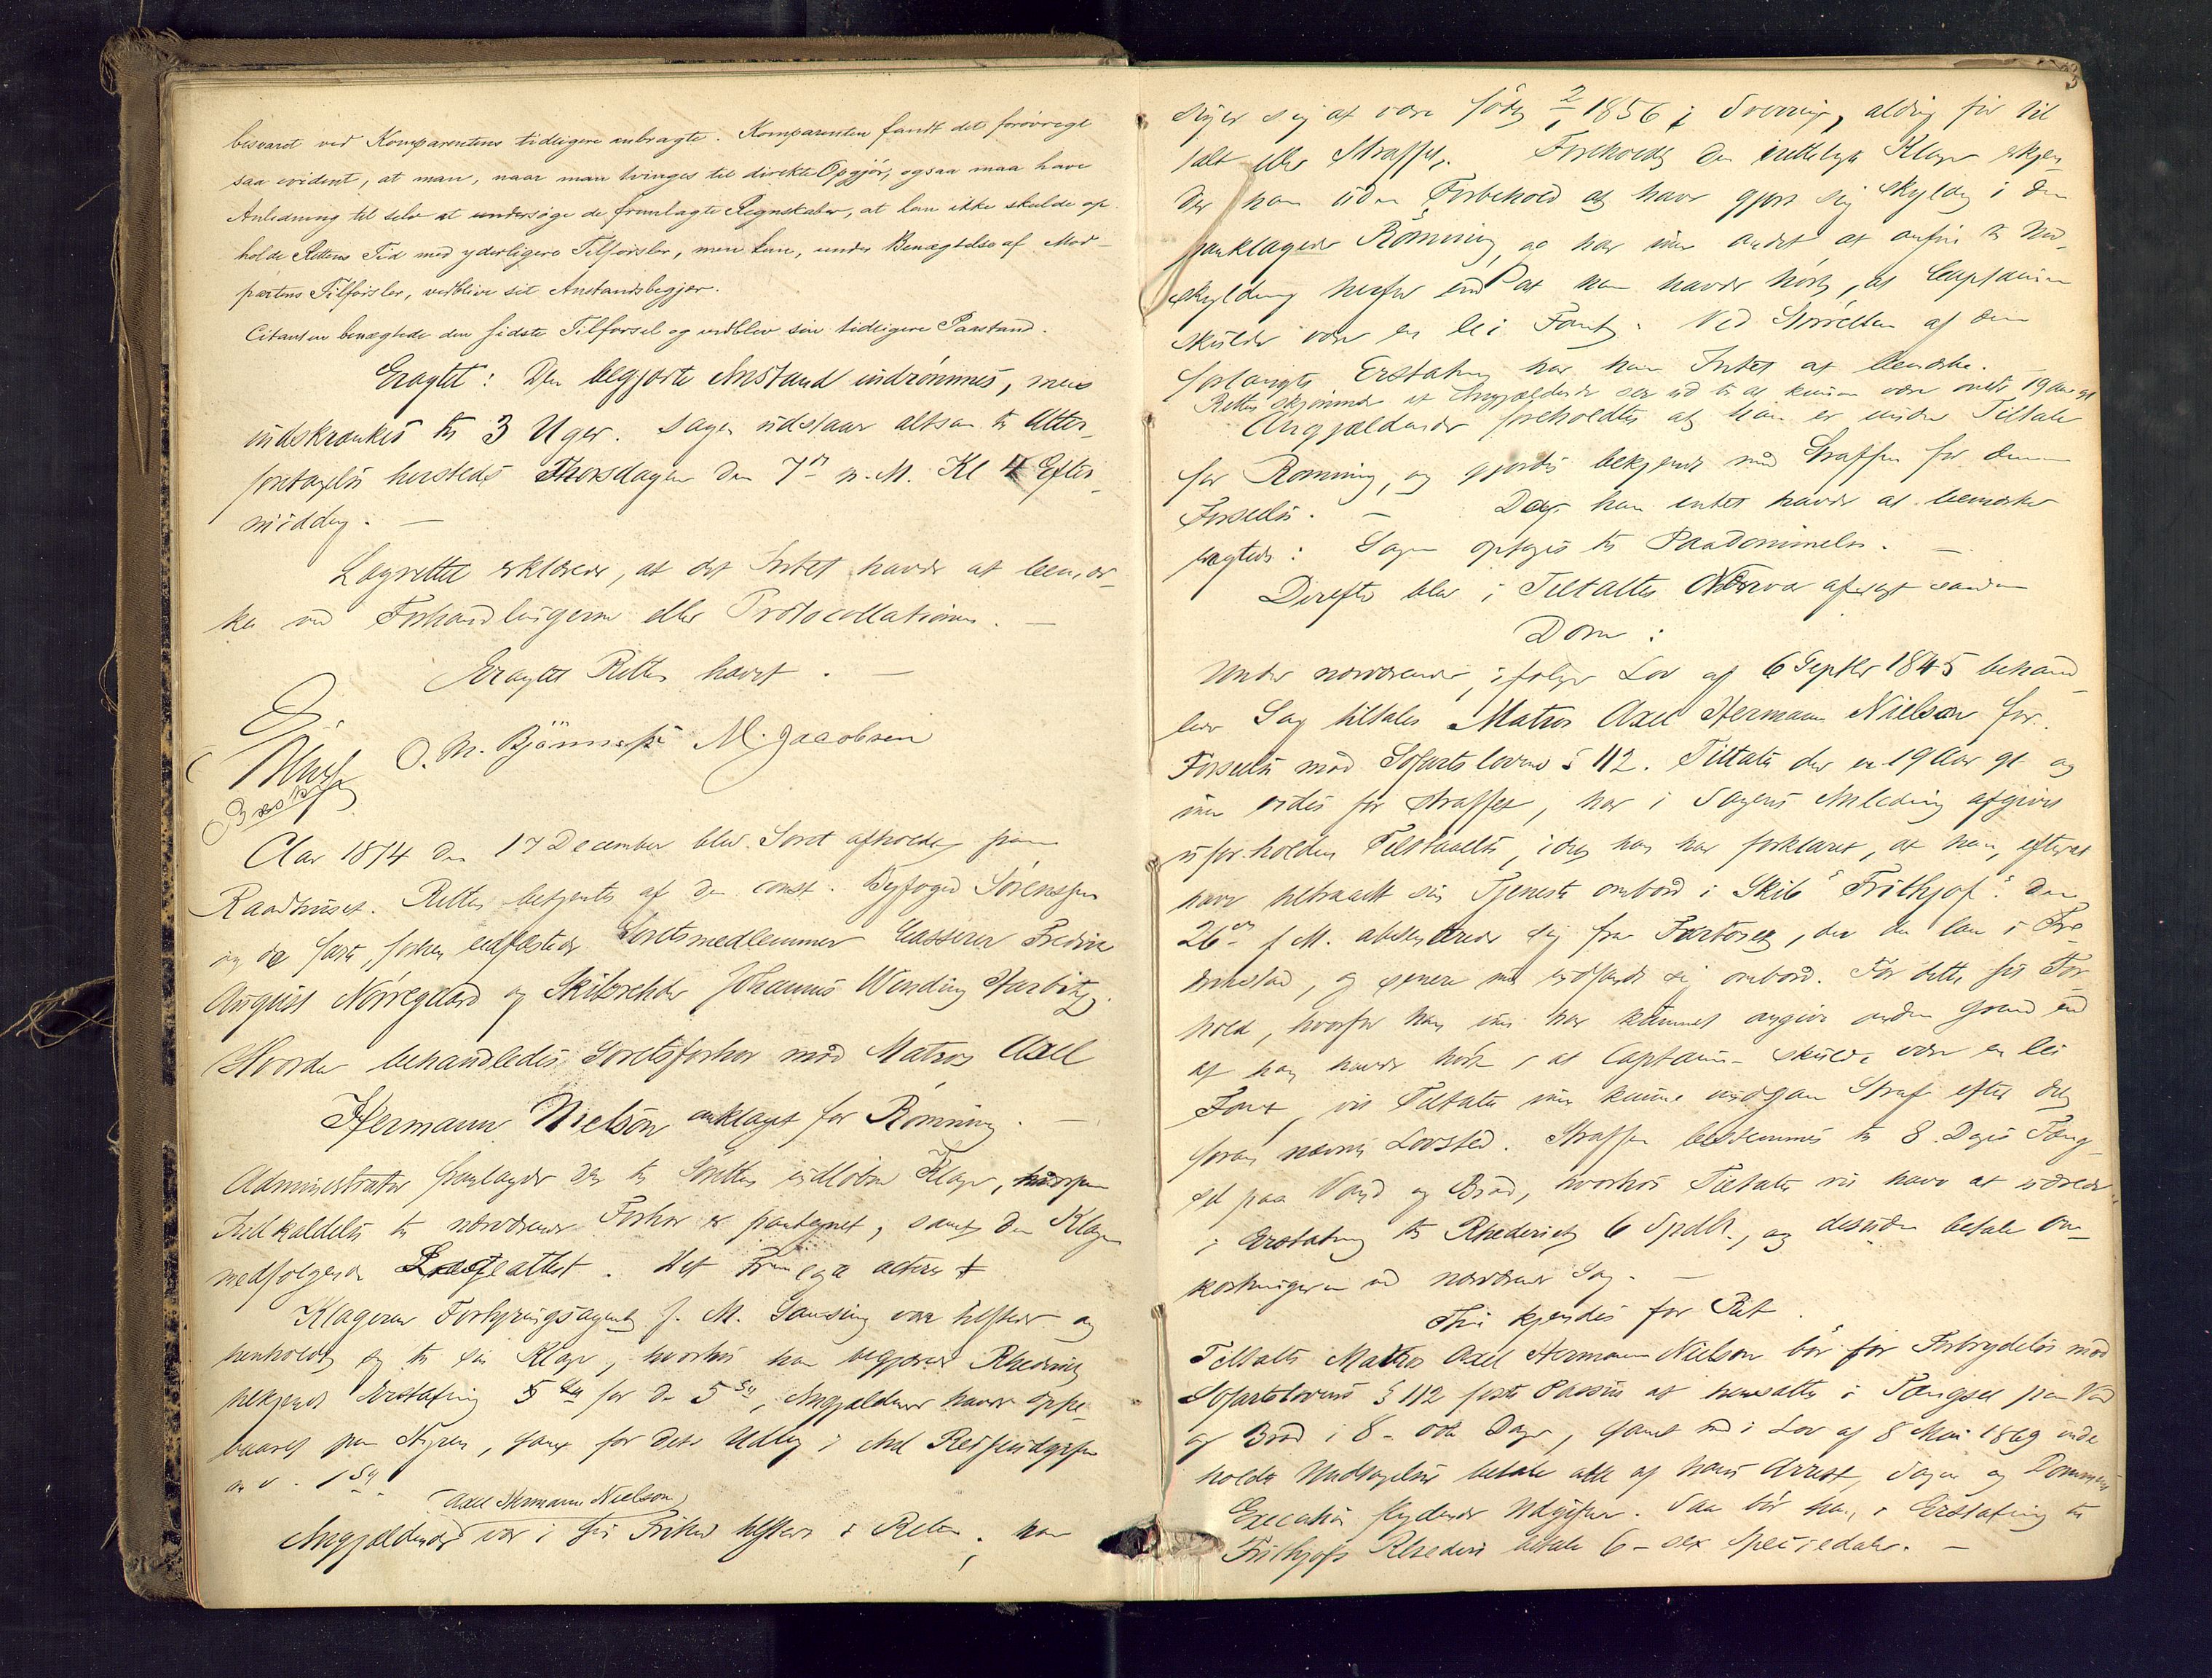 besvaret ved Komparentens tidligere anbragte. Komparenten fandt det forøvrigt
saa evident, at man, naar man tvinges til direkte Opgjør, ogsaa maa have
Anledning til selv at undersøge de fremlagte Regnskaber, at han ikke skulde op-
holde Rettens Tid med yderligere Tilførsler, men kun, under Benægtelse af Mod-
partens Tilførsler, vedblive sit Anstandsbegjær.
Citanten benægtede den sidste Tilførsel og vedblev sin tidligere Paastand.
Eragtet: Den begjærte Anstand indrømmes, men
indskrænkes til 3 Uger. Sagen udstaar altsaa til Atter-
foretagelse hersteds Thorsdagen den 7de n. M. Kl 4 Efter-
middag. —
Lagrettet erklærede, at det Intet havde at bemær-
ke ved Forhandlingerne eller Protocollationen. —
Eragtet Retten hævet. —
O. M. M. Jacobsen
Aar 1874 den 17 December blev Søret afholdt paa
Raadhuset. Retten betjentes af den const. Byfoged Sørenssen
og de faste, forhen edfæstede Søretsmedlemmer Casserer Fredrik
August Nørregaard og Skibsreder Johannes Wending Harbitz.
Hvorda behandledes Søretsforhør mod Matros Axel
Hermann Nielson anklaget for Rømning. —
Administrator fremlagde den til Søretten indløbne Klage, hvorpaa
Indkaldelse til nærværende Forhør er paategnet, samt den Klagen
medfølgende attest. Det Fremlagte acteres
Klageren Forhyringsagent J. M. var tilstede og
henholdt sig til sin Klage, hvorhos han begjærede Rhederiet
tilkjendt Erstatning for de 5 Sp, Angjældende havde oppe-
baaret paa Hyren, samt for dets Udlæg i Anl Reisepenge
m v. 1 Sp
Axel Hermann Nielson
Angjældende var i sin Frihed tilstede i Retten; han
3
siger sig at være født 2/1 1856 i Sverrig, aldrig før til
talt eller straffet. Foreholdt den indløbne Klage erkjen-
der han uden Forbehold at have gjort sig skyldig i den
paaklagede Rømning, og har intet andet at anføre til Und-
skyldning herfor end at han havde hørt, at Captainen
skulde være en lei Fant. Ved Størrelsen af den
forlangte Erstatning har han Intet at bemærke. —
Retten skjønnede at Angjældende ser ud til at kunne være omtr 19 Aar gl
Angjældende foreholdtes at han er under Tiltale
for Rømning, og gjordes bekjendt med Straffen for denne
Forseelse. — Da han intet havde at bemærke
eragtedes: Sagen optages til Paadømmelse. —
Derefter blev i Tiltaltes Nærvær afsagt saadan
Dom:
Under nærværende, ifølge Lov af 6 Septbr 1845 behand-
lede Sag tiltales Matros Axel Hermann Nielson for
Forseelse mod Søfartslovens § 112. Tiltalte der er 19 Aar gl og
ikke vides før straffet, har i Sagens Anledning afgivet
uforbeholden Tilstaaelse, idet han har forklaret, at han, efterat
have tiltraadt sin Tjeneste ombord i Skib "Frithjof" den
26de f M. absenterede sig fra Fartøiet, der da laa i Fre-
drikstad, og senere ei indfandt sig ombord. For dette sit For
hold, hvorfor han ikke har kunnet angive anden Grund end
at han havde hørt, at Captainen skulde være en lei
Fant, vil Tiltalte ikke kunne undgaa Straf efter det
foran nævnte Lovsted. Straffen bestemmes til 8 Dages Fæng-
sel paa Vand og Brød, hvorhos Tiltalte vil have at udrede
i Erstatning til Rhederiet 6 Spdlr., og desuden betale Om-
kostningerne ved nærværende Sag. —
Thi kjendes for Ret.
Tiltalte Matros Axel Hermann Nielson bør for Forbrydelse mod
Søfartslovens § 112 første Passus at hensættes i Fængsel paa Vand
og Brød i 8 - otte Dage, samt med i Lov af 8 Mai 1869 inde
holdte Undtagelser betale alle af hans Arrest, Sagen og Dommens
Execution flydende Udgifter. Saa bør han i Erstatning til
Frithjofs Rhederi betale 6 - sex Speciedaler. —